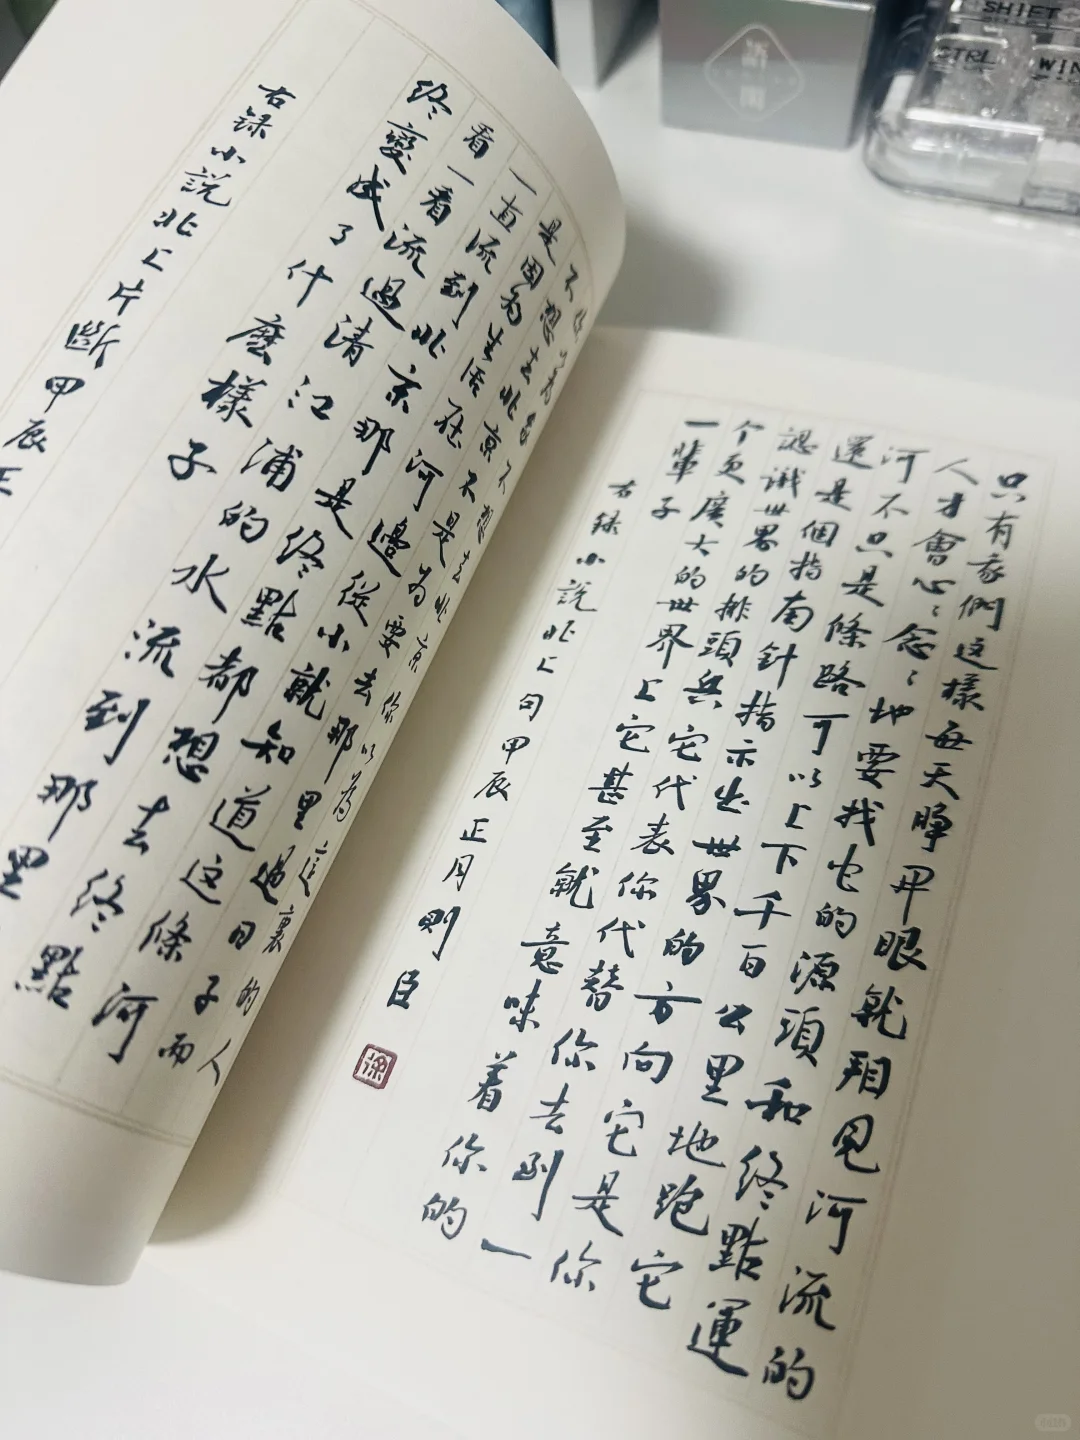 你以为我不想去北京你以為這裏的人
不想去北京不是为要去那里過日子而
是因为生活在河邊從小就知道这條河
一直流到北京那是終點都想去終點
看一看流過清江浦的水流到那里
終變成了什麼樣子
右錄小說北上片斷甲辰正
只有我們这樣每天睁开眼就看見河流的
人才會心々念々地要找它的源頭和終點運
河不只是條路可以上下千百公里地跑它
還是個指南針指示出世界的方向它是你
認識世界的排頭兵它代表你代替你去到一
个更廣大的世界上它甚至就意味着你的
一輩子
右錄小說北上句甲辰正月則臣
SHIFT
CTRL
WIN